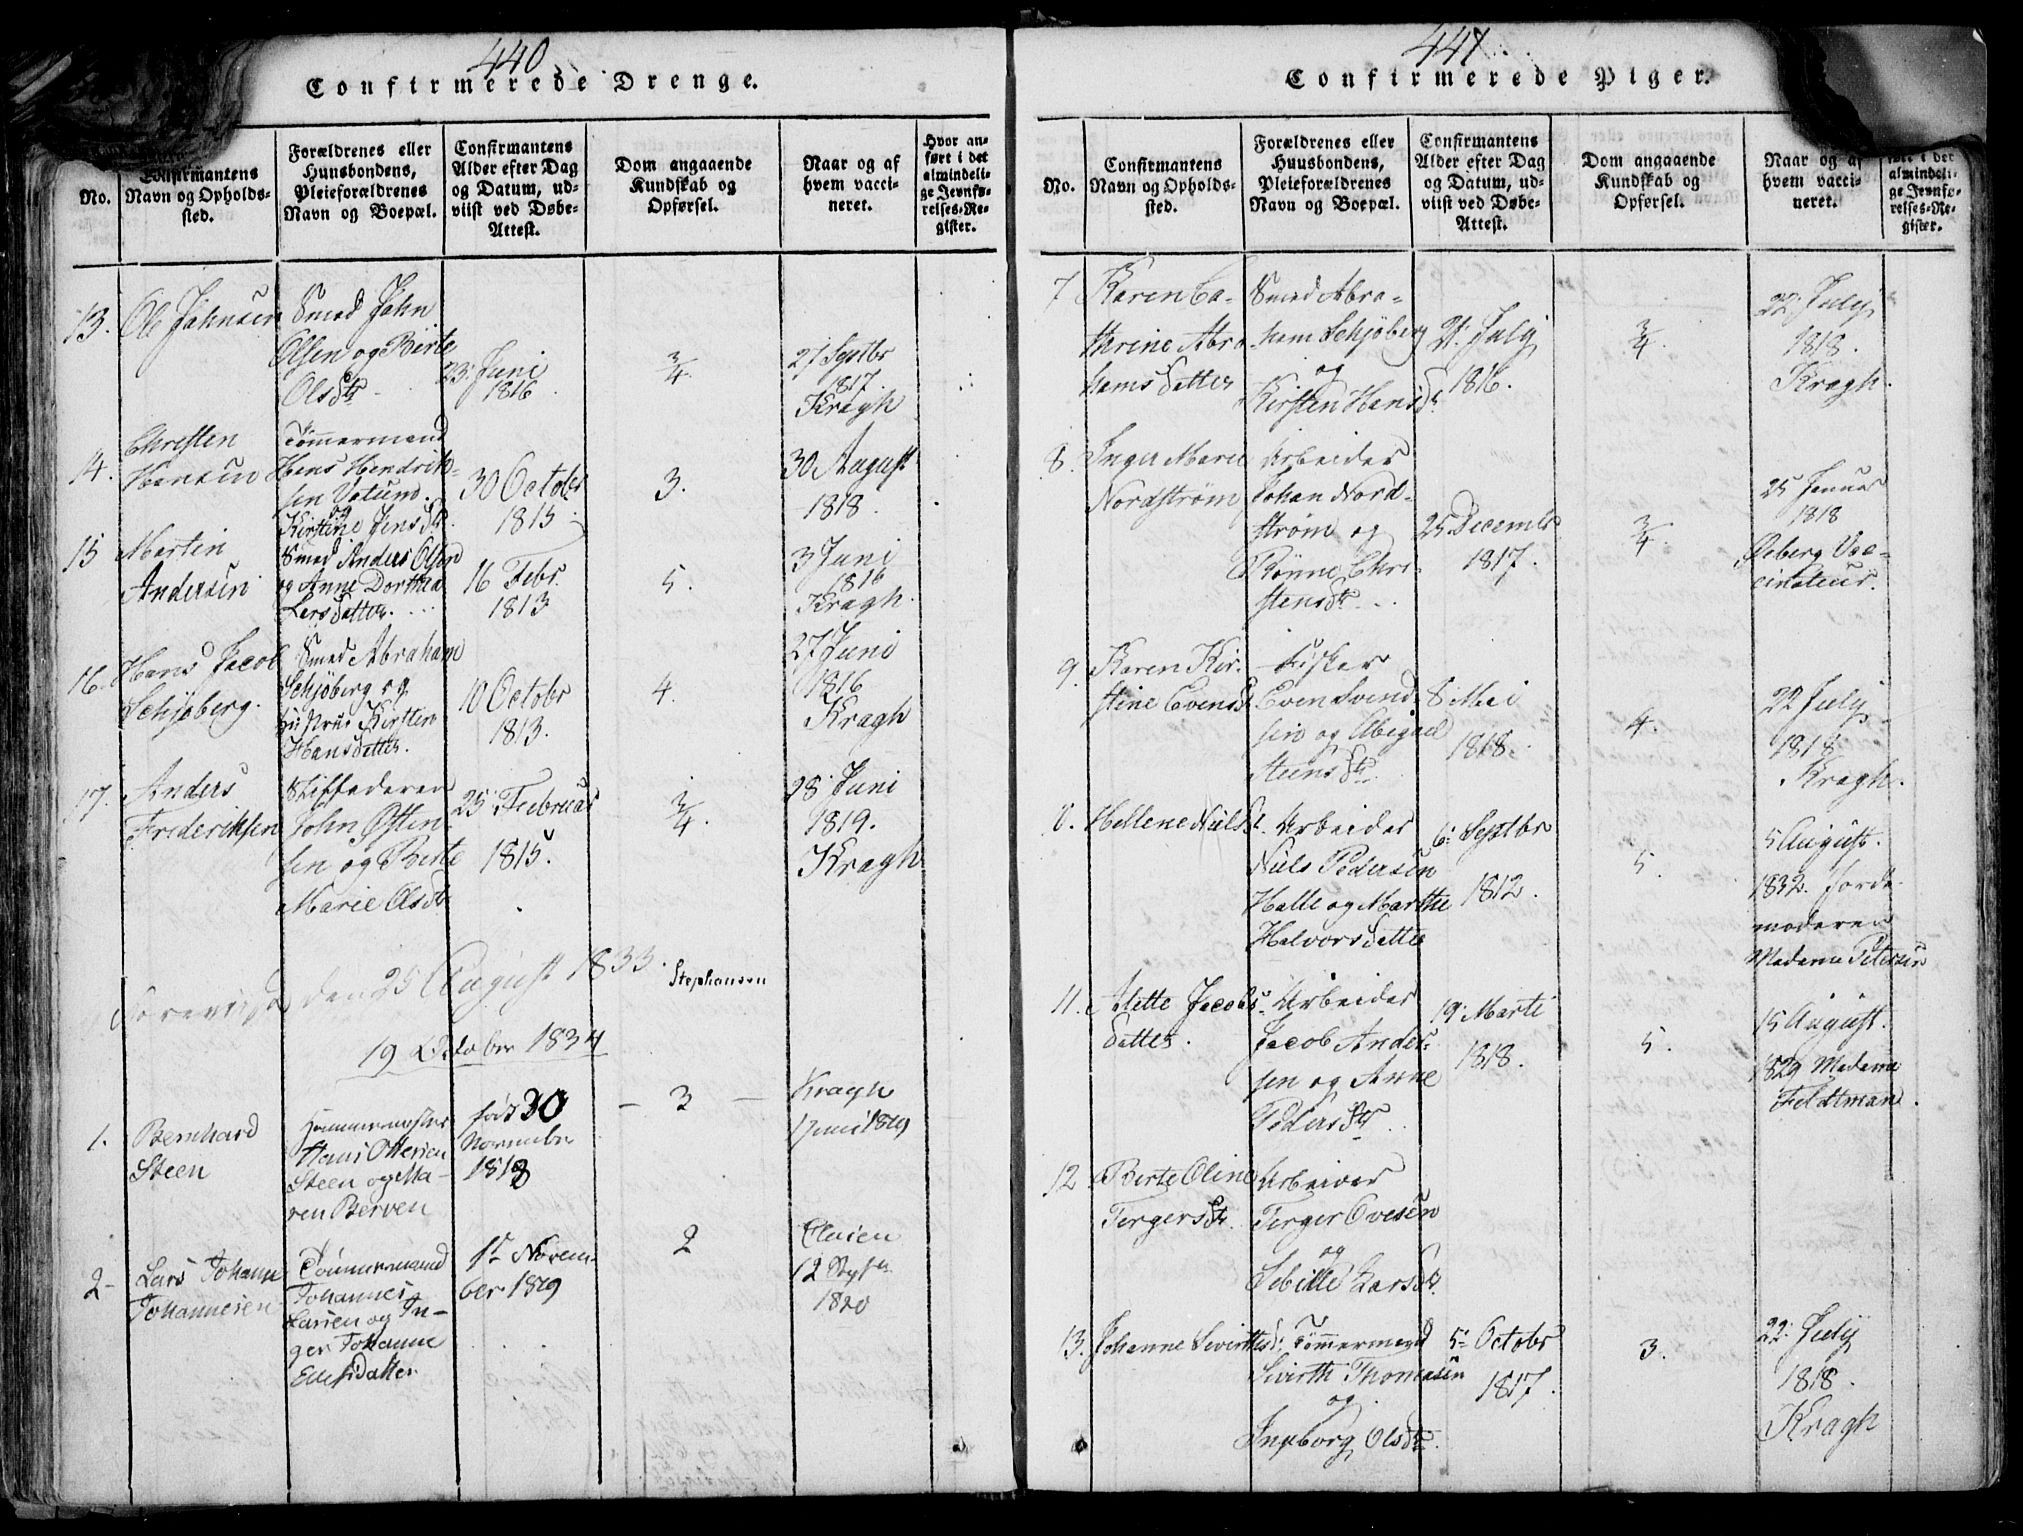 440
Confirmerede Drenge.
No.
Confirmantens
Navn og Opholds-
sted.
Forældrenes eller
Huusbondens,
Pleieforældrenes
Navn og Boepæl.
Confirmantens
Alder efter Dag
og Datum, ud-
viist ved Døbe-
Attest.
Dom angaaende
Kundskab og
Opførsel.
Naar og af
hvem vacci-
neret.
Hvor an-
ført i det
almindeli-
ge Jevnfø-
relses-Re-
gister.
13.
Ole Jahnsen
Smed Jahn
Olsen og Birte
Olsdtr
23: Juni
1816
3/4.
27 Septbr
1817.
Kragh
14.
Christen
Hansen
Tømmermand
Hans Hendrik-
sen
og
Kirstine Jensdtr.
30 October
1815
3.
30 August
1818.
15
Martin
Andersen
Smed Anders Olsen
og Anne Dorthea
Larsdatter.
16 Febr.
1813
5.
3 Juni
1816
Kragh.
16.
Hans Jacob
Schjøberg.
Smed Abraham
Schjøberg og
Hustrue Kirsten
Hansdatter.
10 Octobr
1813.
4.
27 Juni
1816
Kragh
17.
Anders
Frederiksen
Stiffaderen
John Østen-
sen og Birte
Marie Olsdtr
25 Februar
1815.
3/4.
28 Juni
1819.
Kragh
den 25 August 1833.
Stephansen
19 October 1834
1.
Bernhard
Steen
Hammermester
Hans Ottesen
Steen og Ma-
ren Berven
født 30
Novembr
1818
3
Kragh
1 Juni 1819
2
Lars Johann
Johannesen
Tömmermand
Johannes
Larsen og In-
ger Johanne
Ellefsdatter
1st Novem-
ber 1819
2
Claesen
12
1820
441
Confirmerede Piger.
No.
Confirmantens
Navn og Opholds-
sted.
Forældrenes eller
Huusbondens,
Pleieforældrenes
Navn og Boepæl.
Confirmantens
Alder efter Dag
og Datum, ud-
viist ved Døbe-
Attest.
Dom angaaende
Kundskab og
Opførsel.
Naar og af
hvem vacci-
neret.
ført i det
almindeli-
ge Jevnfø-
relses-Re-
gister.
7
Karen Ca-
thrine Abra
hams datter
Smed Abra-
ham Schjøberg
og
Kirsten Hansdtr
21. July
1816.
3/4.
22. July
1818.
Kragh.
8.
Inger Marie
Nordstrøm
Arbeider
Johan Nord-
strøm og
Rønne Chri-
stensdtr
25 Decembr
1817.
3/4.
25 Januar
1818
Øeberg Vac-
cinateur.
9.
Karen Kir-
stine Evensd
Fisker
Even Svend-
sen og Abigael
Steensdtr.
8 Mai
1818.
4.
22 July
1818
Kragh.
Hellene Nielsd.
Arbeider
Niels Pedersen
Halle og Marthe
Halvorsdatter
6: Septbr
1812.
5.
5 August.
1832. Jorde-
moderen
Madame Petersen
11.
Alette Jacobs-
datter.
Arbeider
Jacob Ander-
sen og Anne
Pedersdtr
19. Marti
1818.
5.
15 August.
1829 Madame
Feldtman.
12
Berte Oline
Tergersdtr.
Arbeider
Terger Ovesen
og
Sebille Larsdtr.
13.
Johanne Sivirthsd:
Tømmermand
Sivirth Thomasen
og
Ingborg Olsdtr.
5: Octobr
1817.
3.
22: July
1818.
Kragh